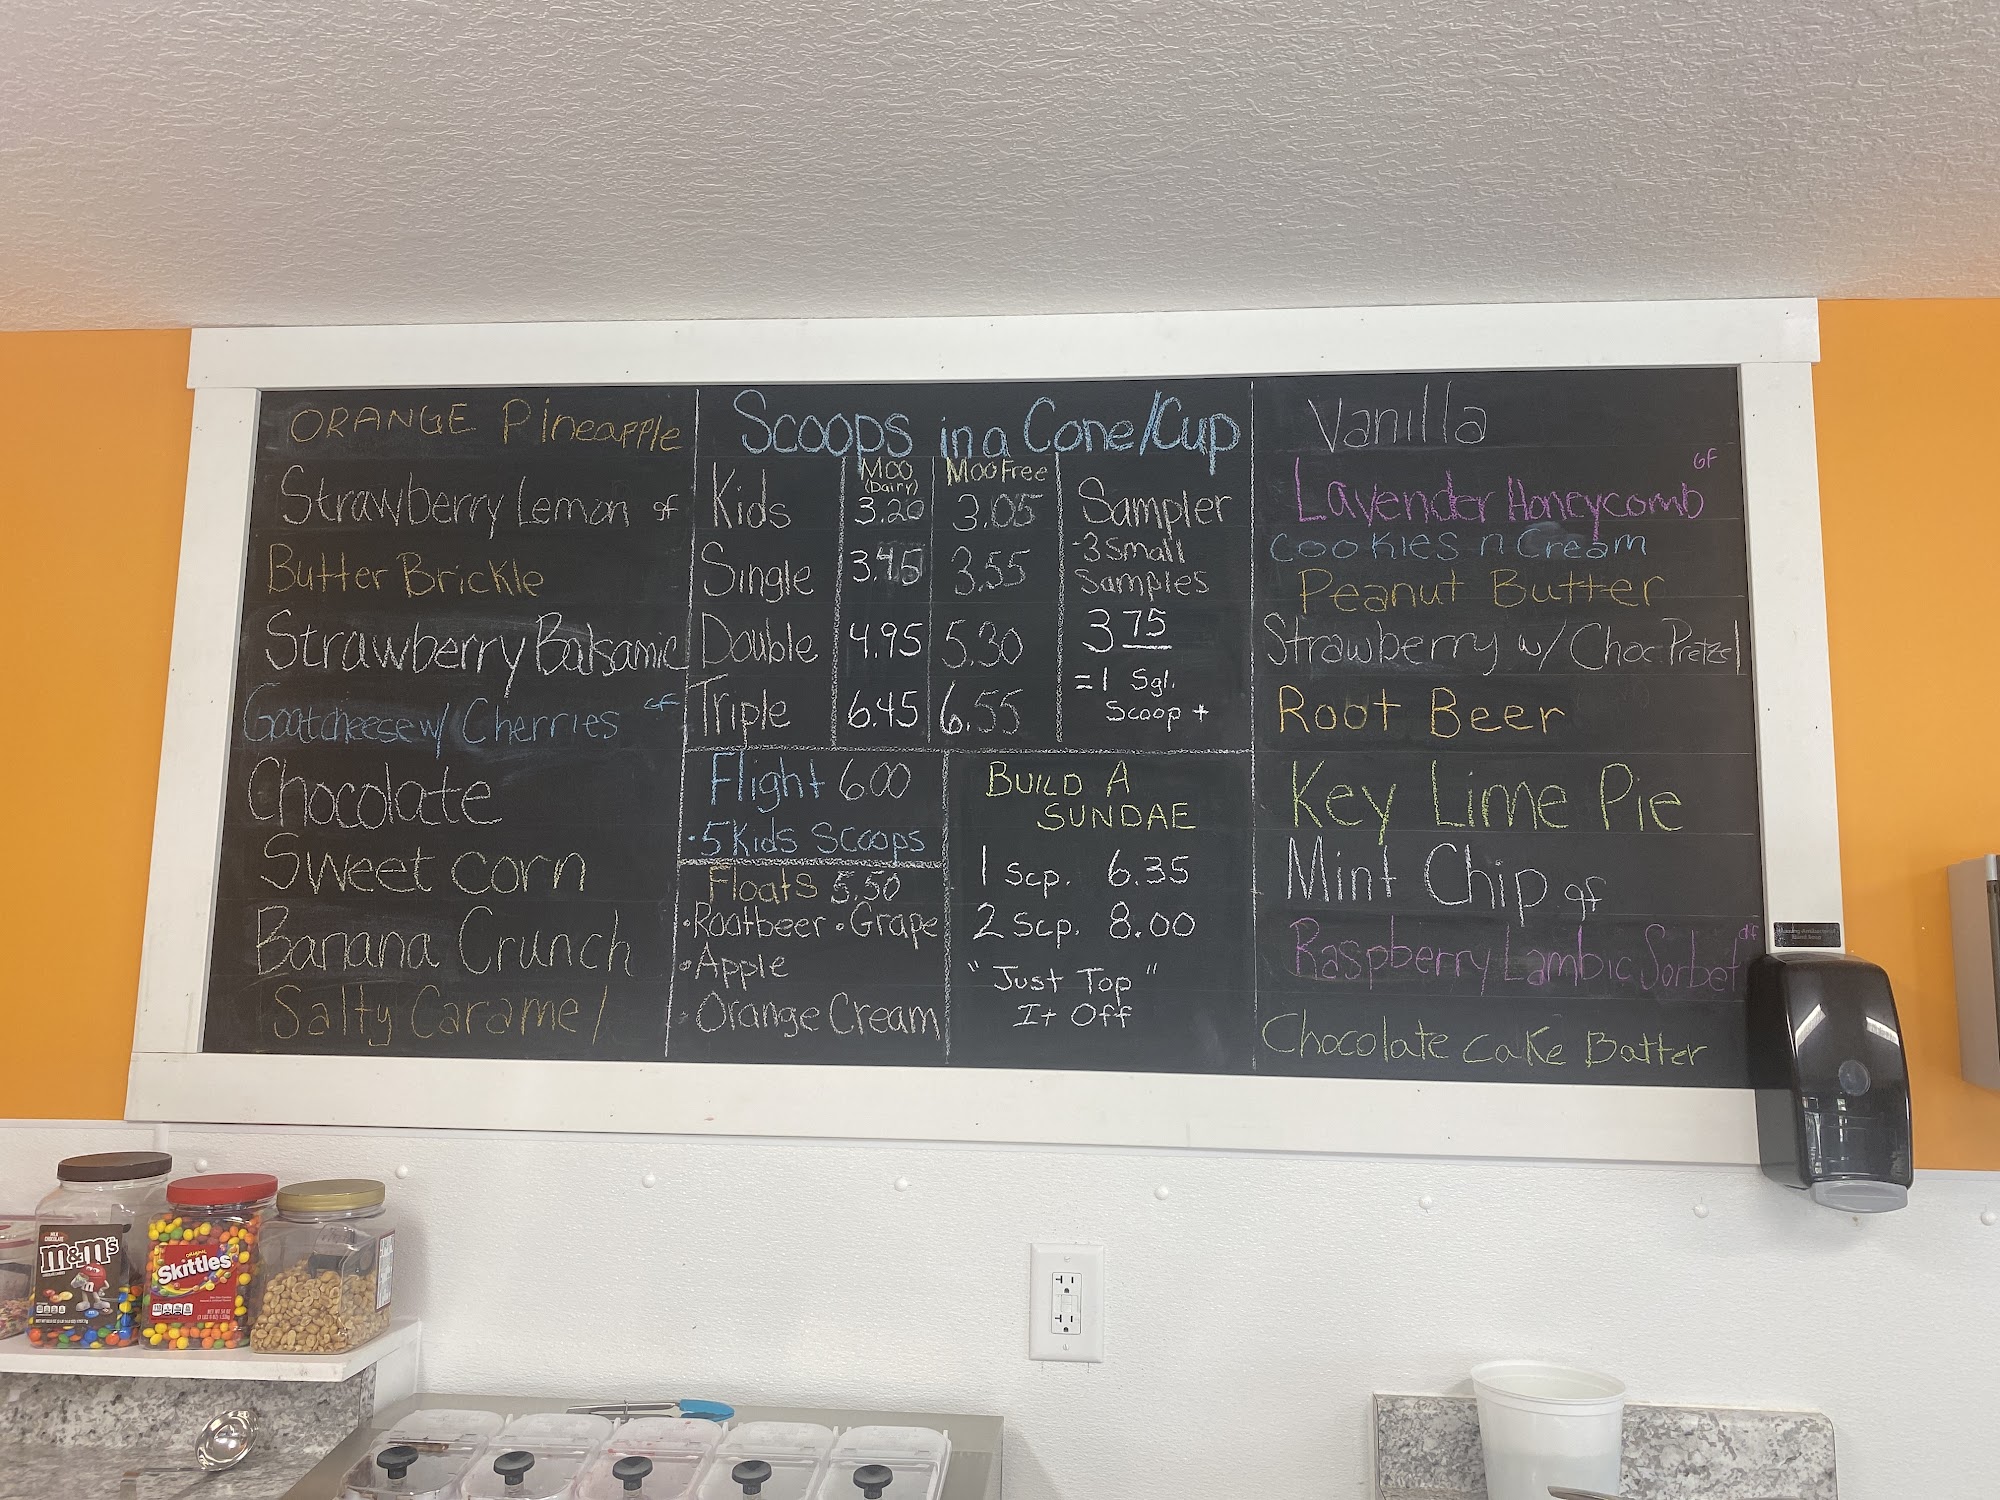 ORANGE Pineapple
Strawberry Lemon gf
Butter Brickle
Strawberry Balsamic
Goatcheese w/ Cherries GF
Chocolate
Sweet corn
Banana Crunch
Salty Caramel
Scoops in a Cone/Cup
Moo (Dairy) Moo Free
Kids 3.20 3.05
Single 3.45 3.55
Double 4.95 5.30
Triple 6.45 6.55
Sampler
-3 Small
Samples
3 75
= 1 Sgl.
Scoop +
Flight 600
·5 Kids Scoops
Floats 5.50
•Rootbeer •Grape
•Apple
•Orange Cream
BUILD A
SUNDAE
1 Scp. 6.35
2 Scp. 8.00
"Just Top"
It Off
Vanilla
Lavender Honeycomb GF
Cookies n Cream
Peanut Butter
Strawberry w/ Choc Pretzel
Root Beer
Key Lime Pie
Mint Chip gf
Raspberry Lambic Sorbet df
Chocolate Cake Batter
MILK CHOCOLATE
m&m's
ORIGINAL
Skittles